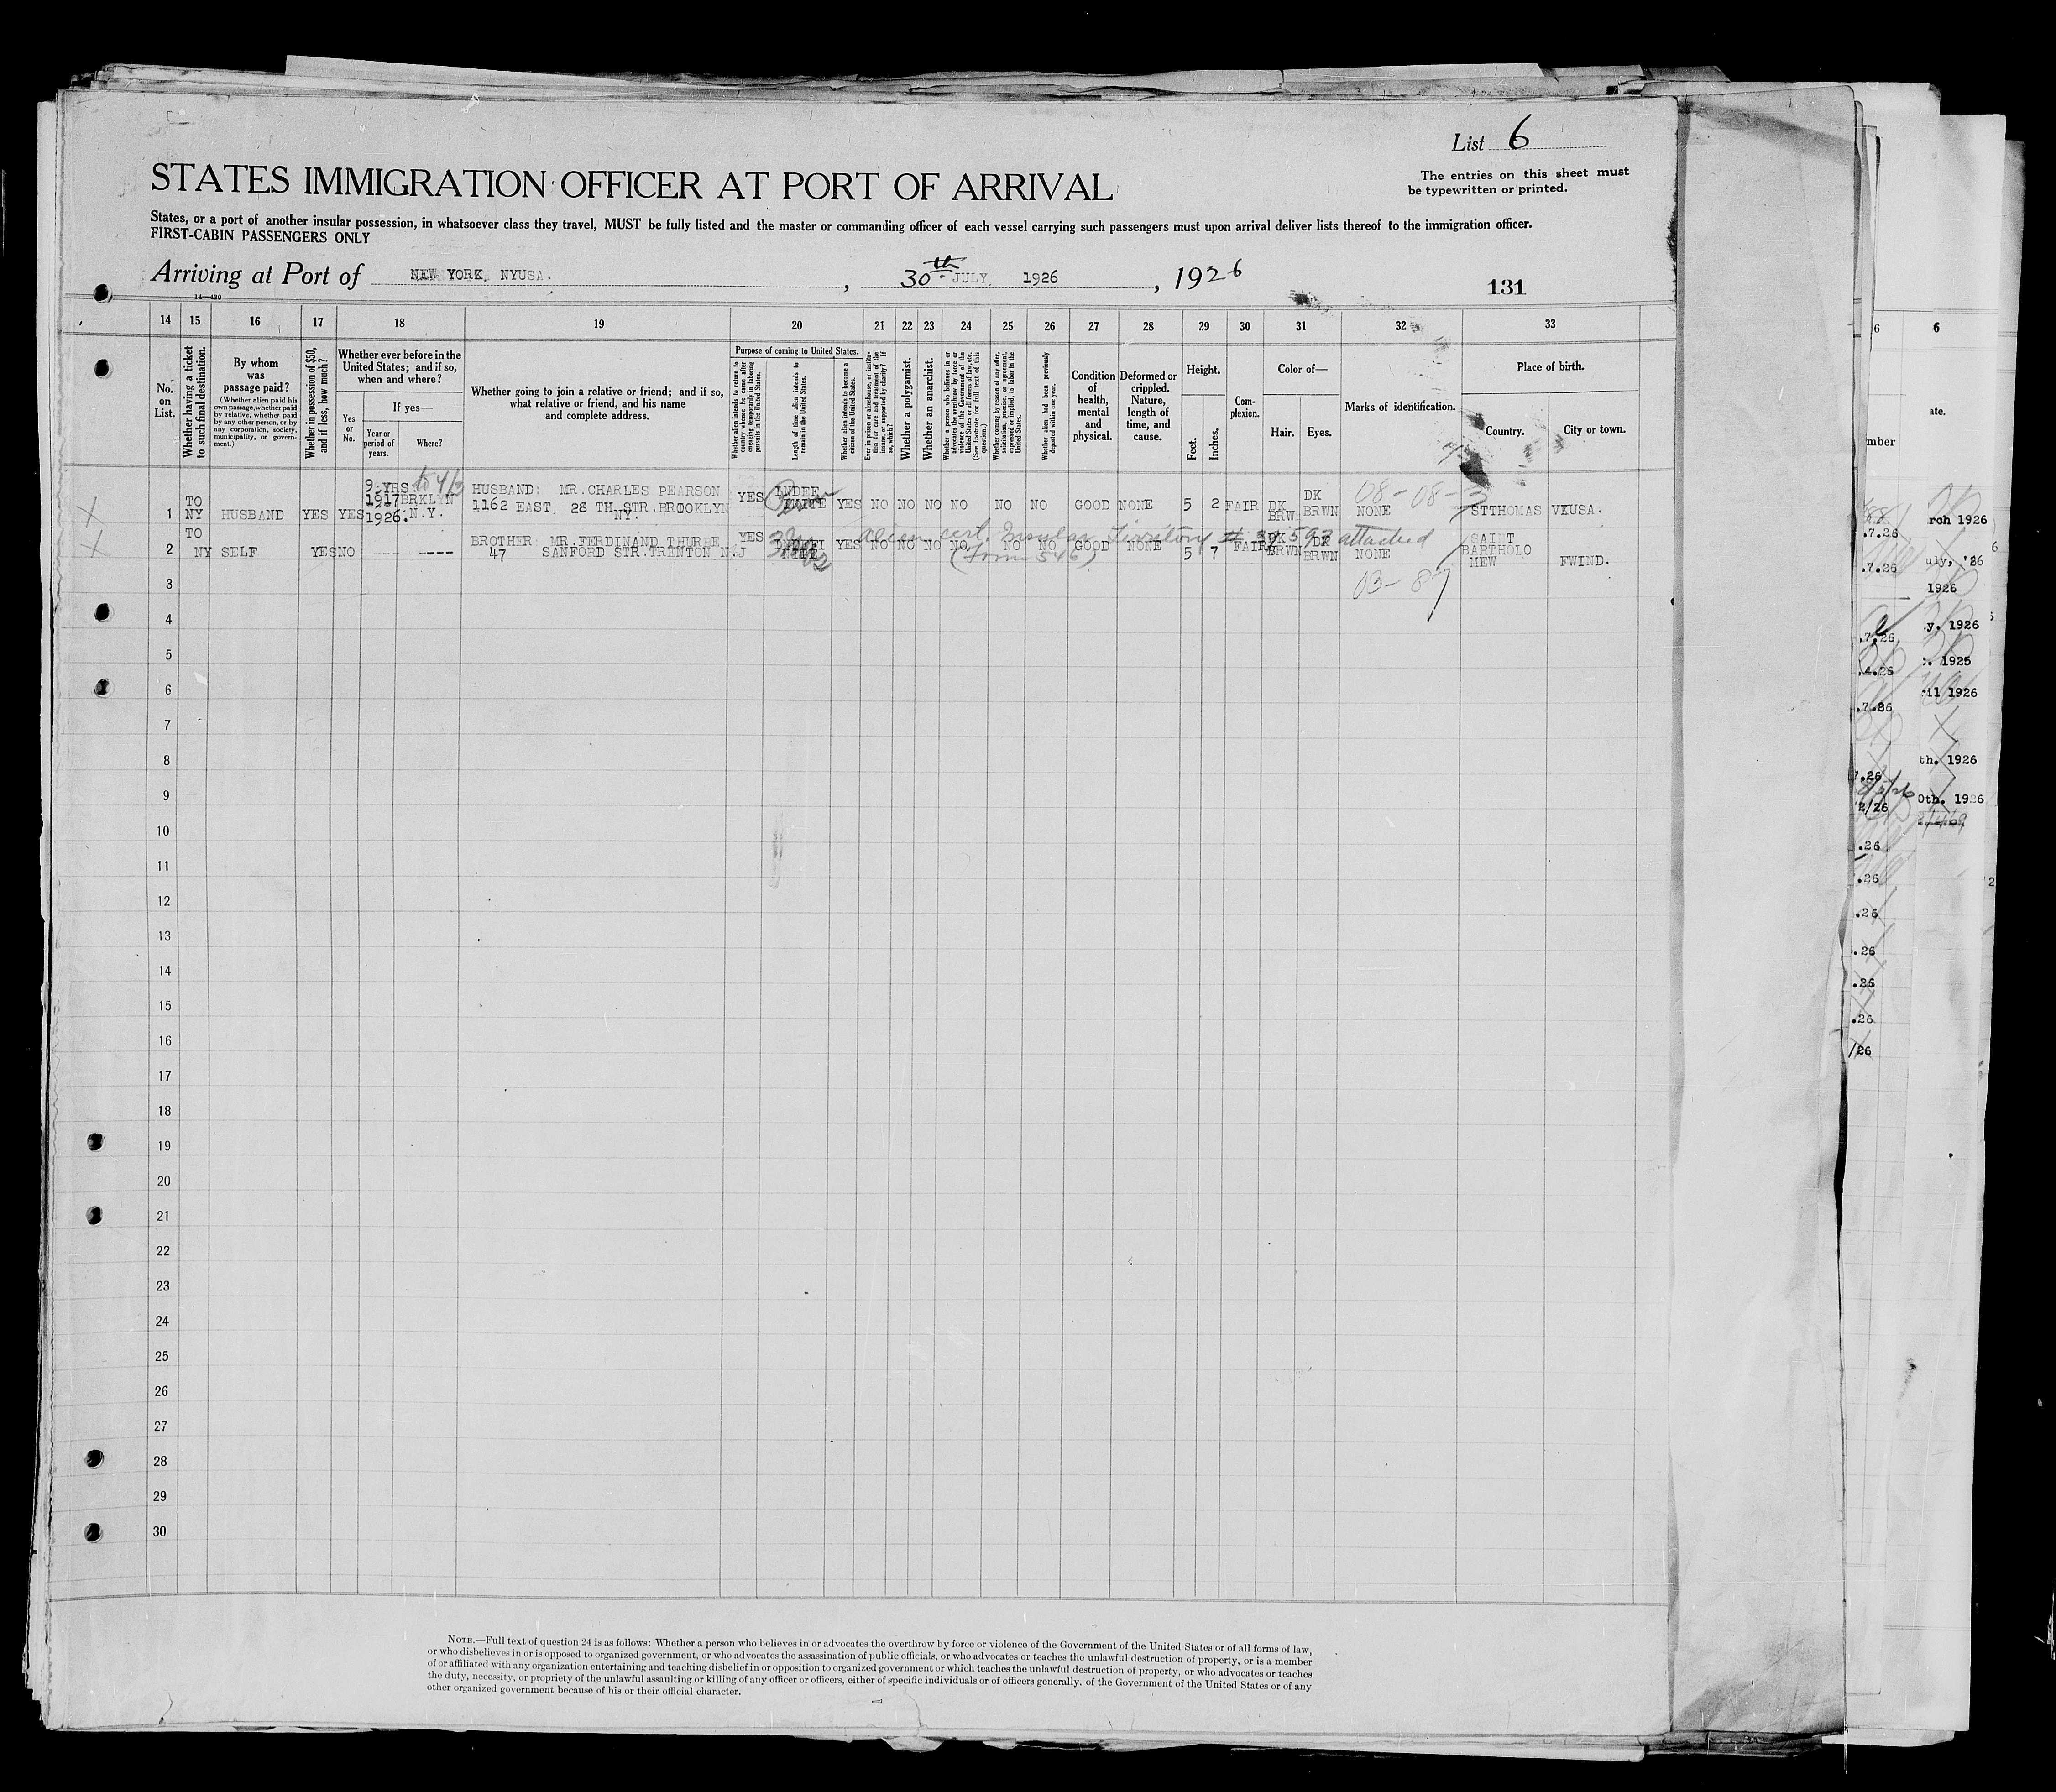 List 6
STATES IMMIGRATION OFFICER AT PORT OF ARRIVAL
The entries on this sheet must
be typewritten or printed.
States, or a port of another insular possession, in whatsoever class they travel, MUST be fully listed and the master or commanding officer of each vessel carrying such passengers must upon arrival deliver lists thereof to the immigration officer.
FIRST-CABIN PASSENGERS ONLY
Arriving at Port of NEW YORK, NYUSA. , 30th JULY, 1926 , 1926
131
14 15 16 17 18 19 20 21 22 23 24 25 26 27 28 29 30 31 32 33
No. on List.
Whether having a ticket to such final destination.
By whom was passage paid?
(Whether alien paid his own passage, whether paid by relative, whether paid by any other person, or by any corporation, society, municipality, or government.)
Whether in possession of $50, and if less, how much?
Whether ever before in the United States; and if so, when and where?
Yes or No.
If yes—
Year or period of years.
Where?
Whether going to join a relative or friend; and if so, what relative or friend, and his name and complete address.
Purpose of coming to United States.
Whether alien intends to return to country whence he came after engaging temporarily in laboring pursuits in the United States.
Length of time alien intends to remain in the United States.
Whether alien intends to become a citizen of the United States.
Ever in prison or almshouse, or institution for care and treatment of the insane, or supported by charity? If so, which?
Whether a polygamist.
Whether an anarchist.
Whether a person who believes in or advocates the overthrow by force or violence of the Government of the United States or all forms of law, etc. (See footnote for full text of this question.)
Whether coming by reason of any offer, solicitation, promise, or agreement, expressed or implied, to labor in the United States.
Whether alien had been previously deported within one year.
Condition of health, mental and physical.
Deformed or crippled. Nature, length of time, and cause.
Height.
Feet.
Inches.
Complexion.
Color of—
Hair.
Eyes.
Marks of identification.
Place of birth.
Country.
City or town.
1 TO NY HUSBAND YES YES 9 YRS. 1917 1926. BRKLYN N.Y. HUSBAND: MR.CHARLES PEARSON 1162 EAST 28 TH.STR.BROOKLYN NY. YES YES NO NO NO NO NO NO GOOD NONE 5 2 FAIR DK BRW DK BRWN NONE STTHOMAS VIUSA.
08-08-3
2 TO NY SELF YES NO --- ---- BROTHER MR.FERDINAND THURBE 47 SANFORD STR.TRENTON NJ YES YES NO NO NO NO NO NO GOOD NONE 5 7 FAIR DK BRWN DK BRWN NONE SAINT BARTHOLO MEW FWIND.
alien cert. Insular Territory attached
(Form 546)
03-87
3
4
5
6
7
8
9
10
11
12
13
14
15
16
17
18
19
20
21
22
23
24
25
26
27
28
29
30
NOTE.—Full text of question 24 is as follows: Whether a person who believes in or advocates the overthrow by force or violence of the Government of the United States or of all forms of law,
or who disbelieves in or is opposed to organized government, or who advocates the assassination of public officials, or who advocates or teaches the unlawful destruction of property, or is a member
of or affiliated with any organization entertaining and teaching disbelief in or opposition to organized government or which teaches the unlawful destruction of property, or who advocates or teaches
the duty, necessity, or propriety of the unlawful assaulting or killing of any officer or officers, either of specific individuals or of officers generally, of the Government of the United States or of any
other organized government because of his or their official character.
6
ate.
mber
rch 1926
.7.26
uly, '26
.7.26
1926
y. 1926
.7.26
. 1925
.4.26
il 1926
.7.26
th. 1926
7.26
0th. 1926
2/26
.26
.26
.26
.26
.26
.26
/26